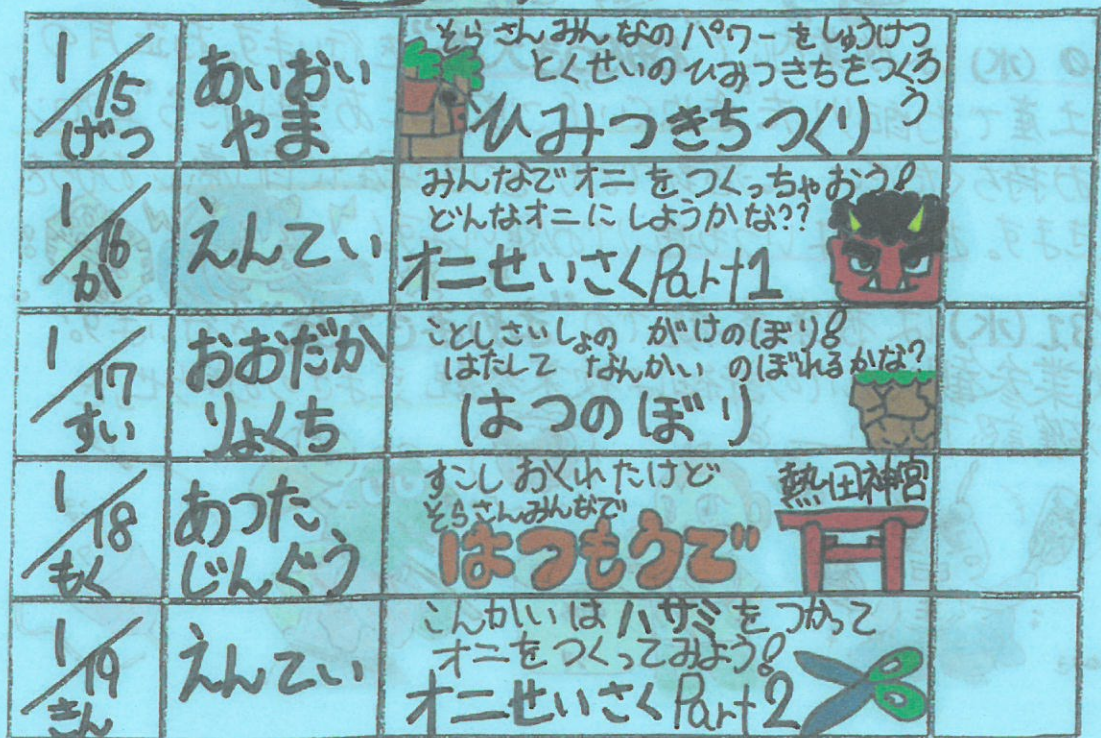 1/15
げつ
あいおい
やま
そらさんみんなのパワーをしゅうけつ
とくせいのひみつきちをつくろう
ひみつきちつくり
1/16
か
えんてい
みんなでオニをつくっちゃおう!
どんなオニにしようかな??
オニせいさくPart1
1/17
すい
おおだか
りょくち
ことしさいしょの がけのぼり!
はたして なんかい のぼれるかな?
はつのぼり
1/18
もく
あつた
じんぐう
すこしおくれたけど
そらさんみんなで
はつもうで
熱田神宮
1/19
きん
えんてい
こんかいはハサミをつかって
オニをつくってみよう!
オニせいさくPart2